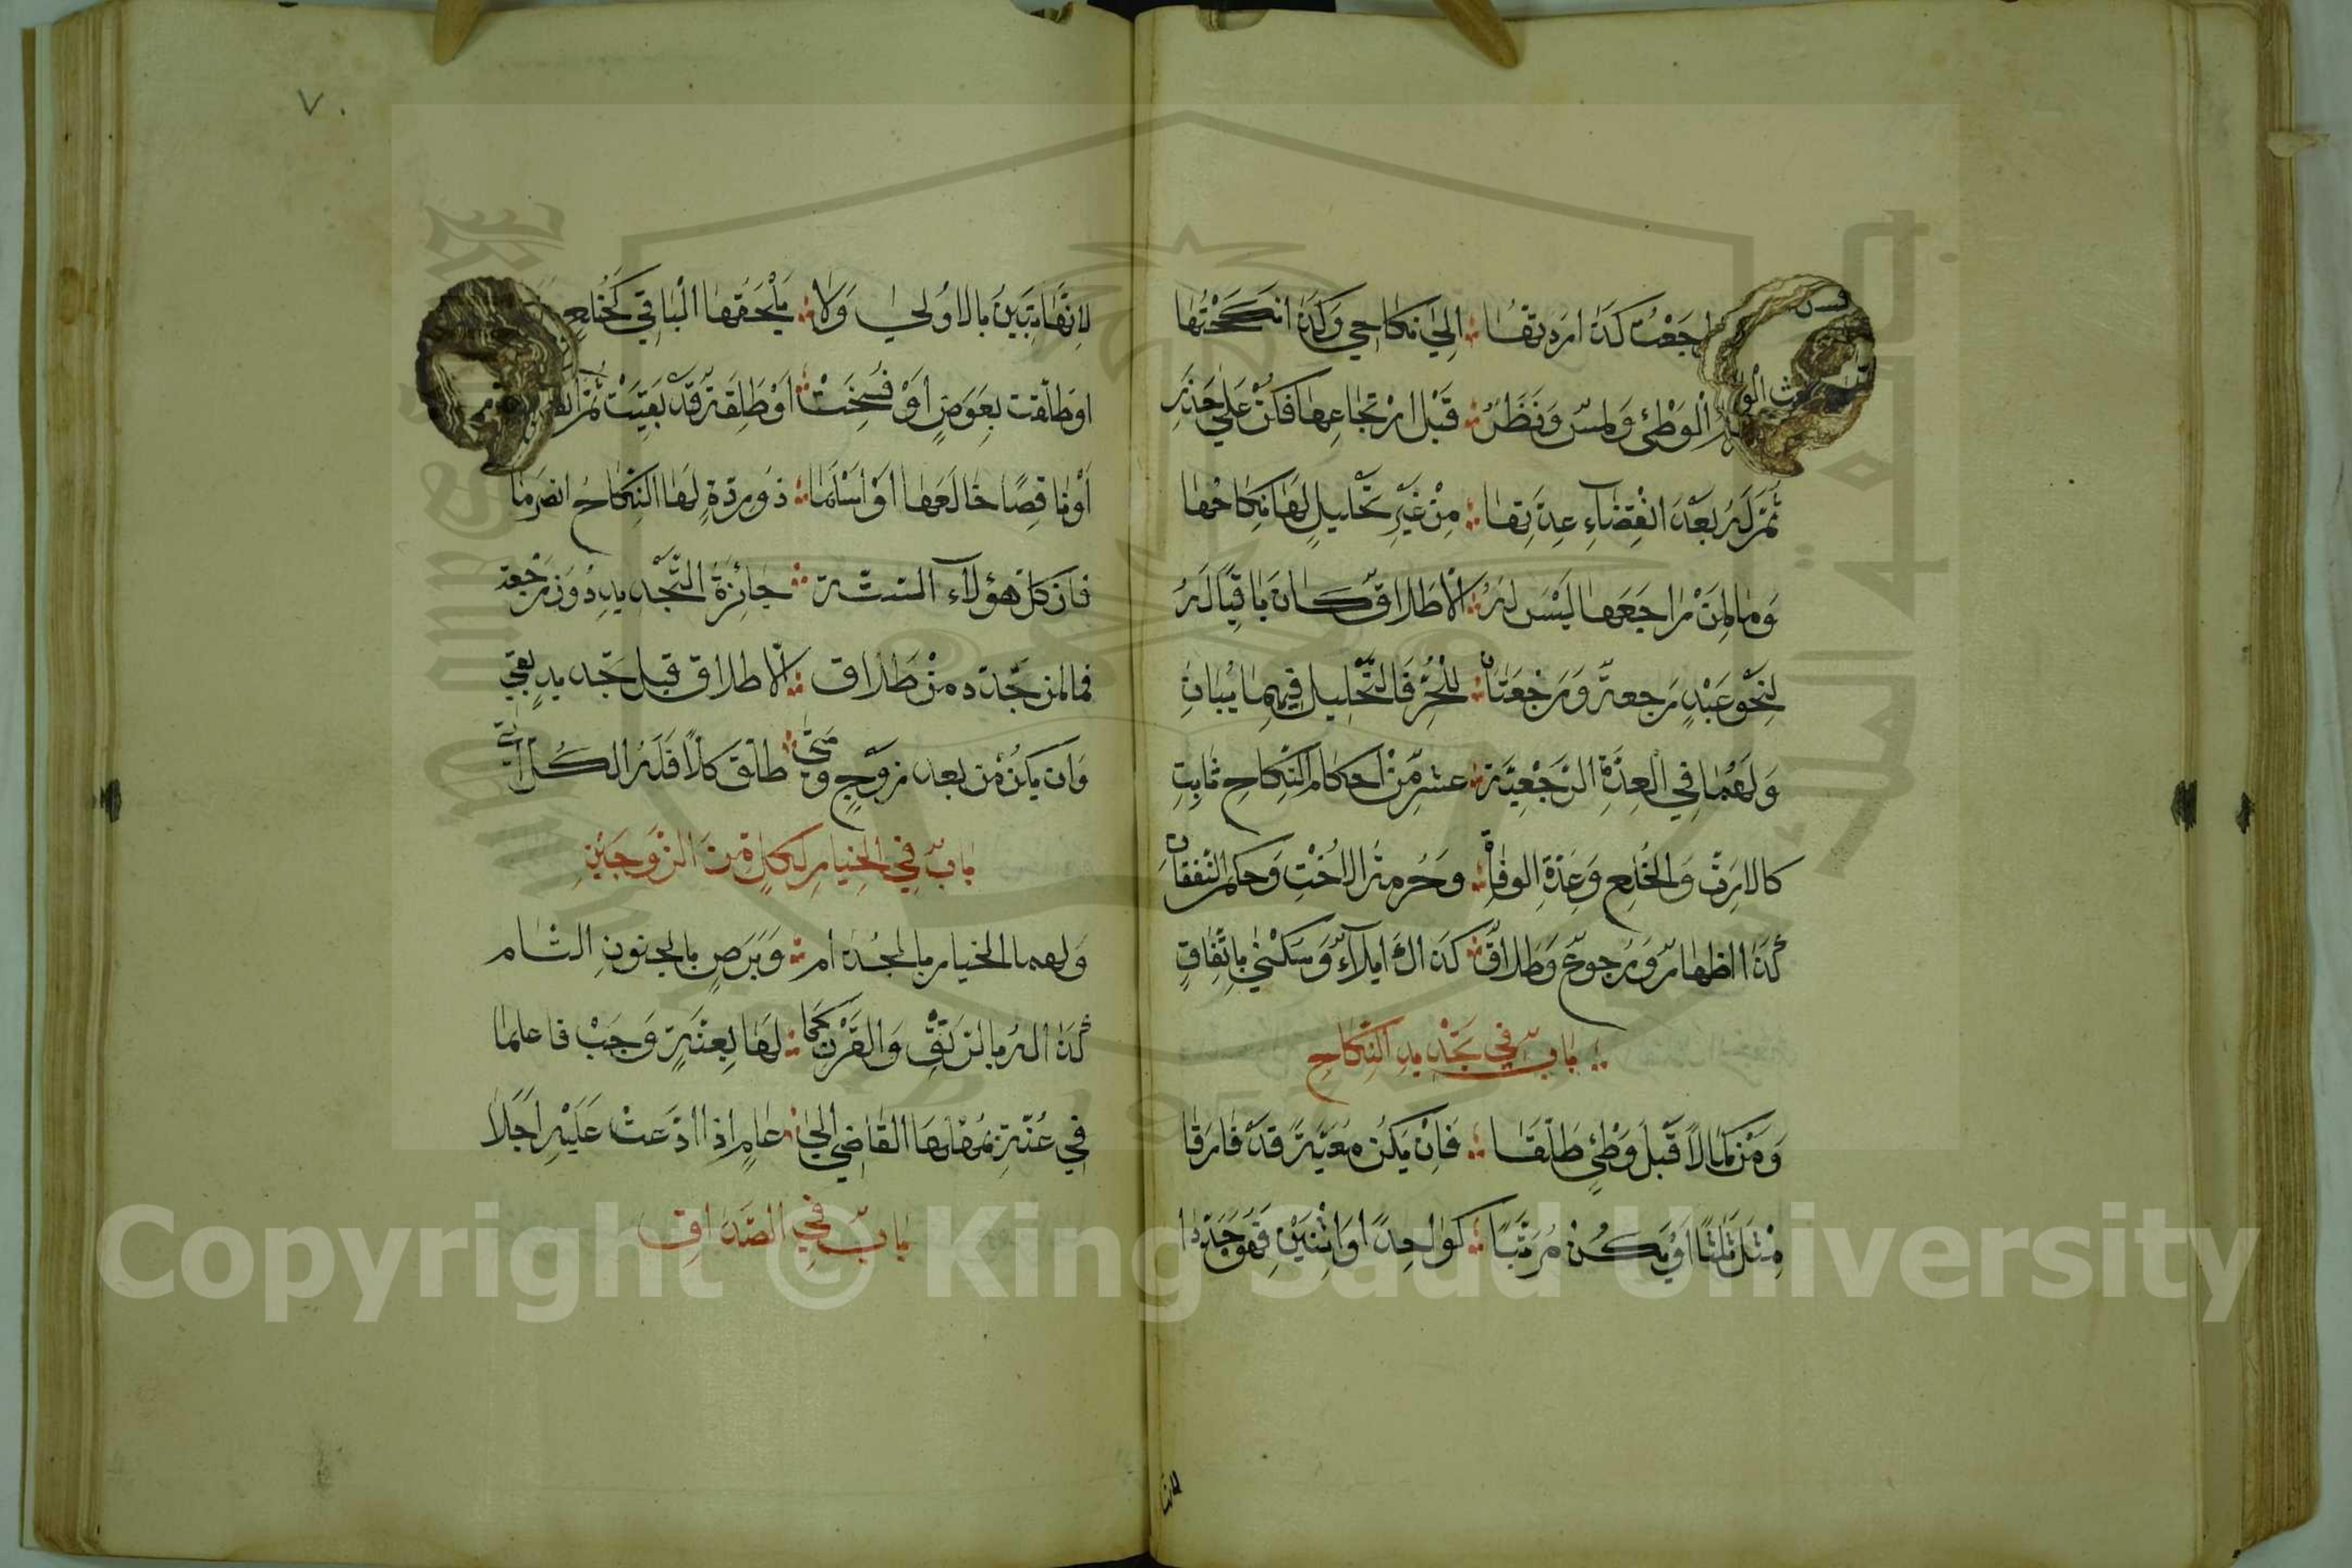 راجعت كذا رددتها ؛ الى نكاحي وكذا نكحتها
الوطئ ولمس ونظر ؛ قبل ارتجاعها فكن على حذر
ثم له بعد انقضاء عدتها ؛ من غير تحليل لها نكاحها
وما لمن راجعها ليس له ؛ الا طلاق كان باقيا له
لنحو عبد رجعة ورجعتان ؛ للحر فالتحليل فيهما يبان
ولهما في العدة الرجعية ؛ عشر من احكام النكاح ثابت
كالارث والخلع وعدة الوفاة ؛ وحرمة الاخت وحكم النفقات
كذا اظهار ورجوع وطلاق ؛ كذاك ايلاء وسكنى باتفاق
؛ باب في تجديد النكاح
ومن كمالا قبل وطئ طلقا ؛ فان يكن معية قد فارقا
مثل ثلثا او يكن مرتبا ؛ كواحدا واثنين فهو جددا
لانت
٧٠
لانها تبين بالاولى ولا ؛ يلحقها الباقي كخلع
او طلقت بعوض او فسخت ؛ او طلقة قد بقيت ثم
او ناقصا خالعها او اسلما ؛ ذو ردة لها النكاح انصرما
فان كل هؤلاء الستة ؛ جائزة التجديد دون رجعة
فما لمن جدده من طلاق ؛ الا طلاق قبل تجديد بقي
وان يكن من بعد زوج ومتى ؛ طلق كلا فله الكل اتى
باب في الخيار لكل من الزوجين
ولهما الخيار بالجذام ؛ وبرص بالجنون التام
كذا له بالرتق والقرن كما ؛ لها بعنة وجب فاعلما
في عنة يمهلها القاضي الى ؛ عام اذا ادعت عليه اجلا
باب في الصداق
Copyright © King Saud University